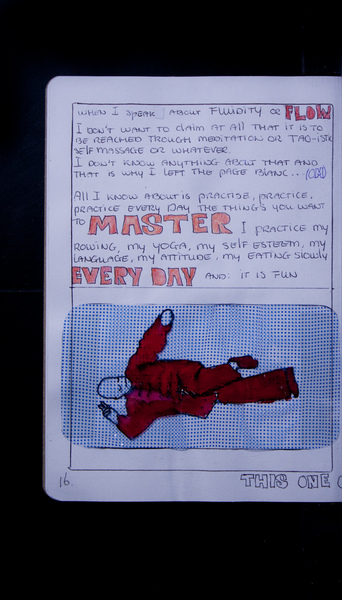 WHEN I SPEAK ABOUT FLUIDITY OR FLOW
I DON'T WANT TO CLAIM AT ALL THAT IT IS TO
BE REACHED TROUGH MEDITATION OR TAO-ISTIC
SELF MASSAGE OR WHATEVER.
I DON'T KNOW ANYTHING ABOUT THAT AND
THAT IS WHY I LEFT THE PAGE BLANC...
ALL I KNOW ABOUT IS PRACTISE, PRACTICE.
PRACTICE EVERY DAY THE THING'S YOU WANT
TO MASTER I PRACTICE MY
ROWING, MY YOGA, MY SELF ESTEEM, MY
LANGUAGE, MY ATTITUDE, MY EATING SLOWLY
EVERY DAY AND: IT IS FUN
16. THIS ONE